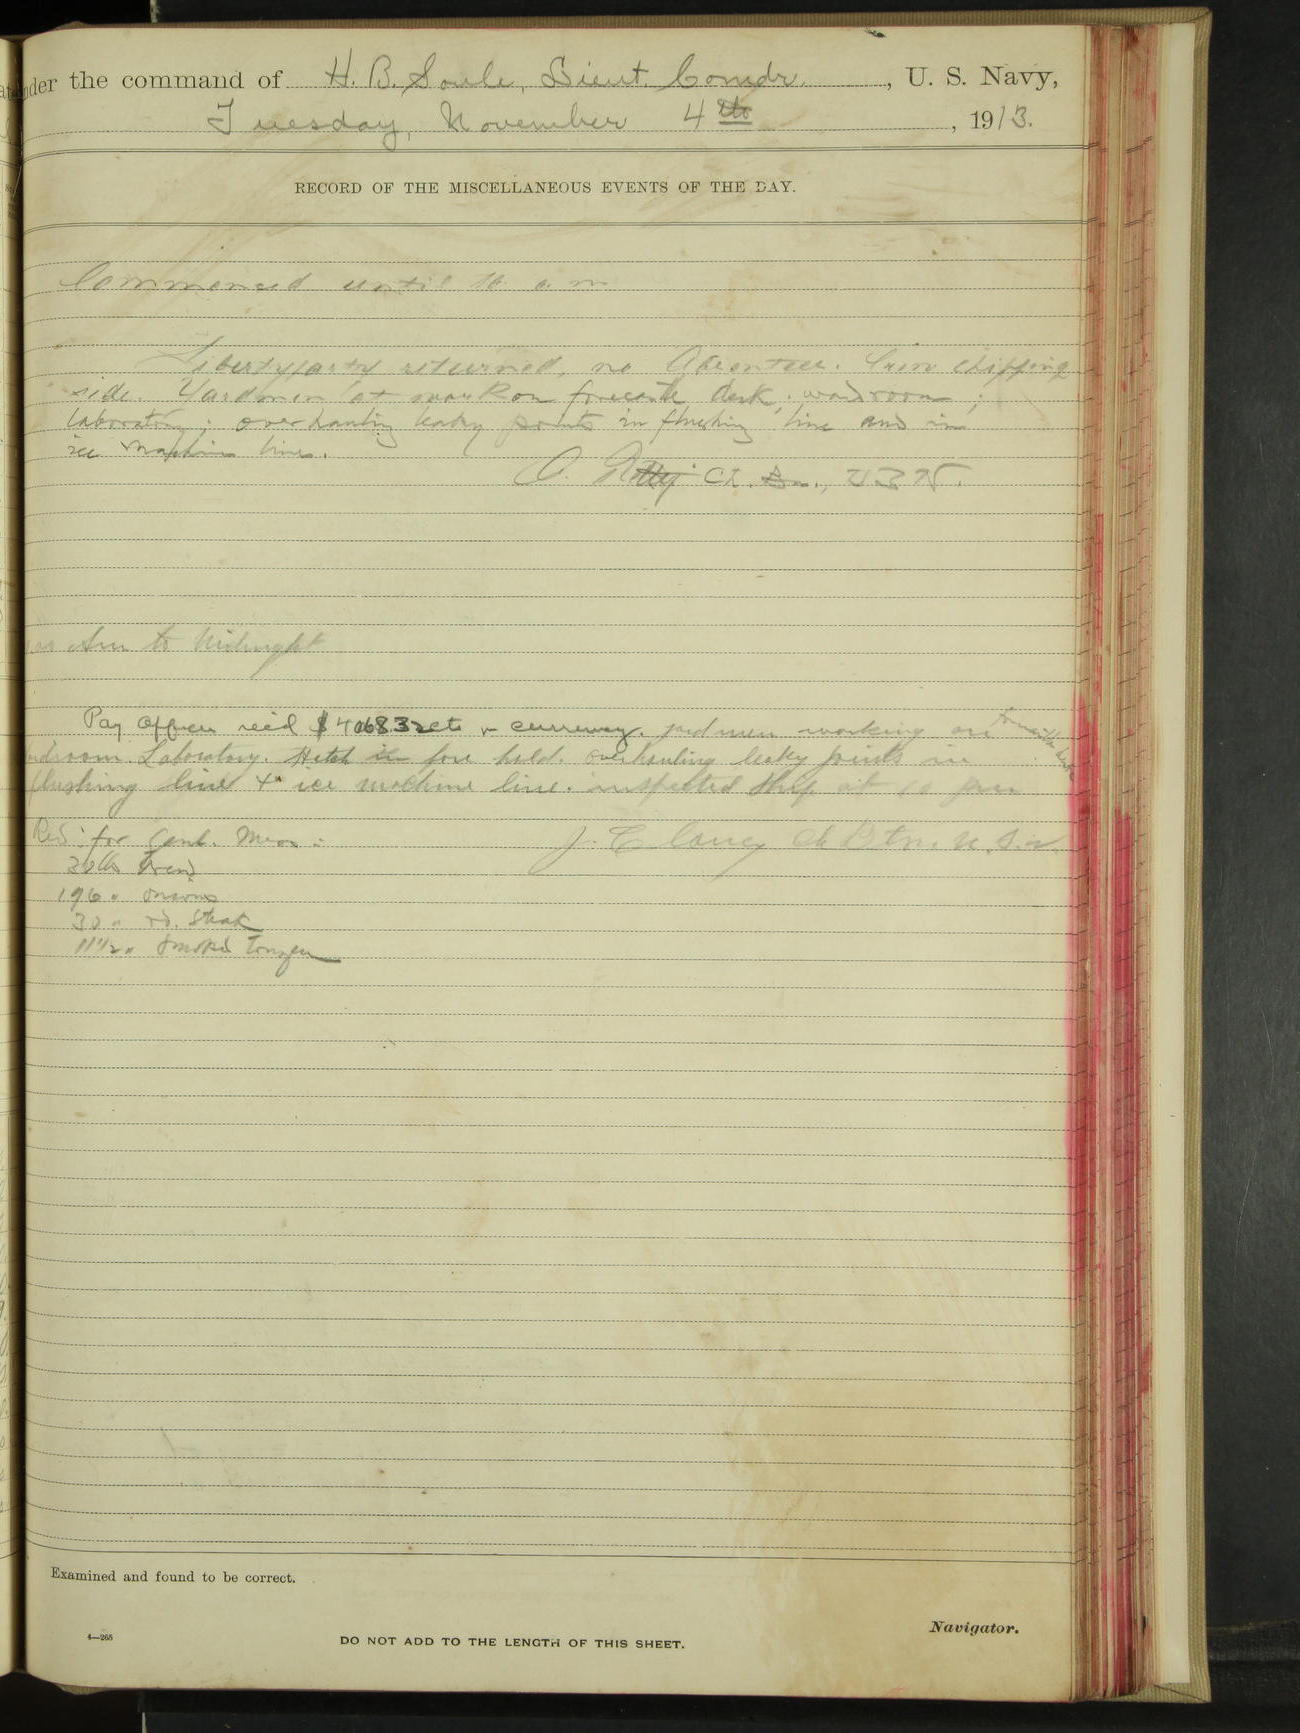 nder the command of H. B. Soule, Lieut. Comdr., U. S. Navy,
Tuesday, November 4th, 1913.
RECORD OF THE MISCELLANEOUS EVENTS OF THE DAY.
Commenced until 10 a. m
Liberty party returned, no Absentees. Crew chipping
side. Yardmen at work on forecastle deck; wardroom;
laboratory; overhauling leaky joints in flushing line and in
ice machine line.
Ch. Bn., U S N.
to Midnight
Pay Officer rec'd $ in currency. yardmen working on
Laboratory. fore hold. overhauling leaky joints in
flushing line & ice machine line. inspected ship at 10 pm
J. Clancy Ch Btn. U.S.N.
Rec'd for Genl. Mess:
30 lbs bread
196 " onions
30 " rd. Steak
11 1/2 " Smoked Tongue
Examined and found to be correct.
Navigator.
4—265
DO NOT ADD TO THE LENGTH OF THIS SHEET.